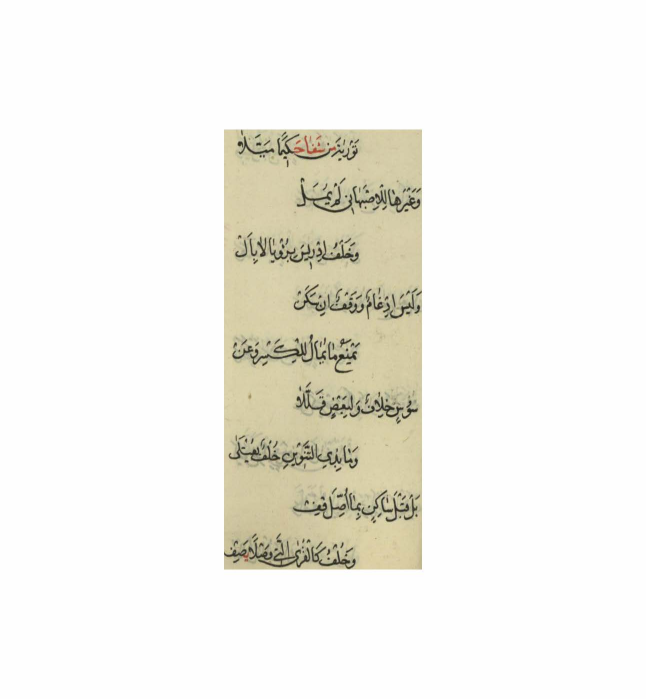 تَوْرِيةَ مِن شَفَا حَكِيمًا مَيَّلَا
وَغَيْرُهَا لِلْاصْبَهَانِي لَمْ يُمَلْ
وَخُلْفُ ادْرِيسَ بِرُؤْيَا لَا بِأَلْ
وَلَيْسَ ادْغَامٌ وَوَقْفٌ انْ سَكَنْ
يَمْنَعُ مَا يُمَالُ لِلْكَسْرِ وَعَنْ
سُوسٍ خِلَافٌ وَلِبَعْضٍ قُلِّلَا
وَمَا بِذِي التَّنْوِينِ خُلْفٌ يُعْتَلَى
بَلْ قَبْلَ سَاكِنٍ بِمَا أُصِّلَ قِفْ
وَخُلْفُ كَالْقُرَى الَّتِي وَصْلًا يَصِفْ